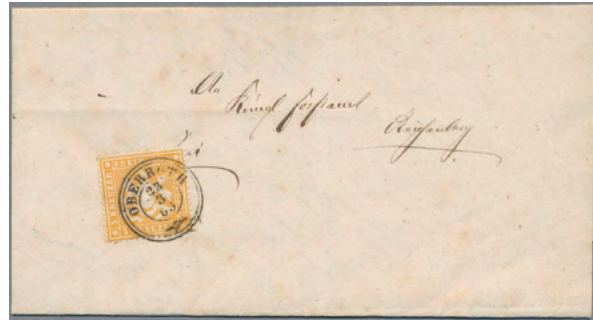 An
Königl. Forstamt
Reichenberg
frei
OBERROTH
23
3
KREUZER